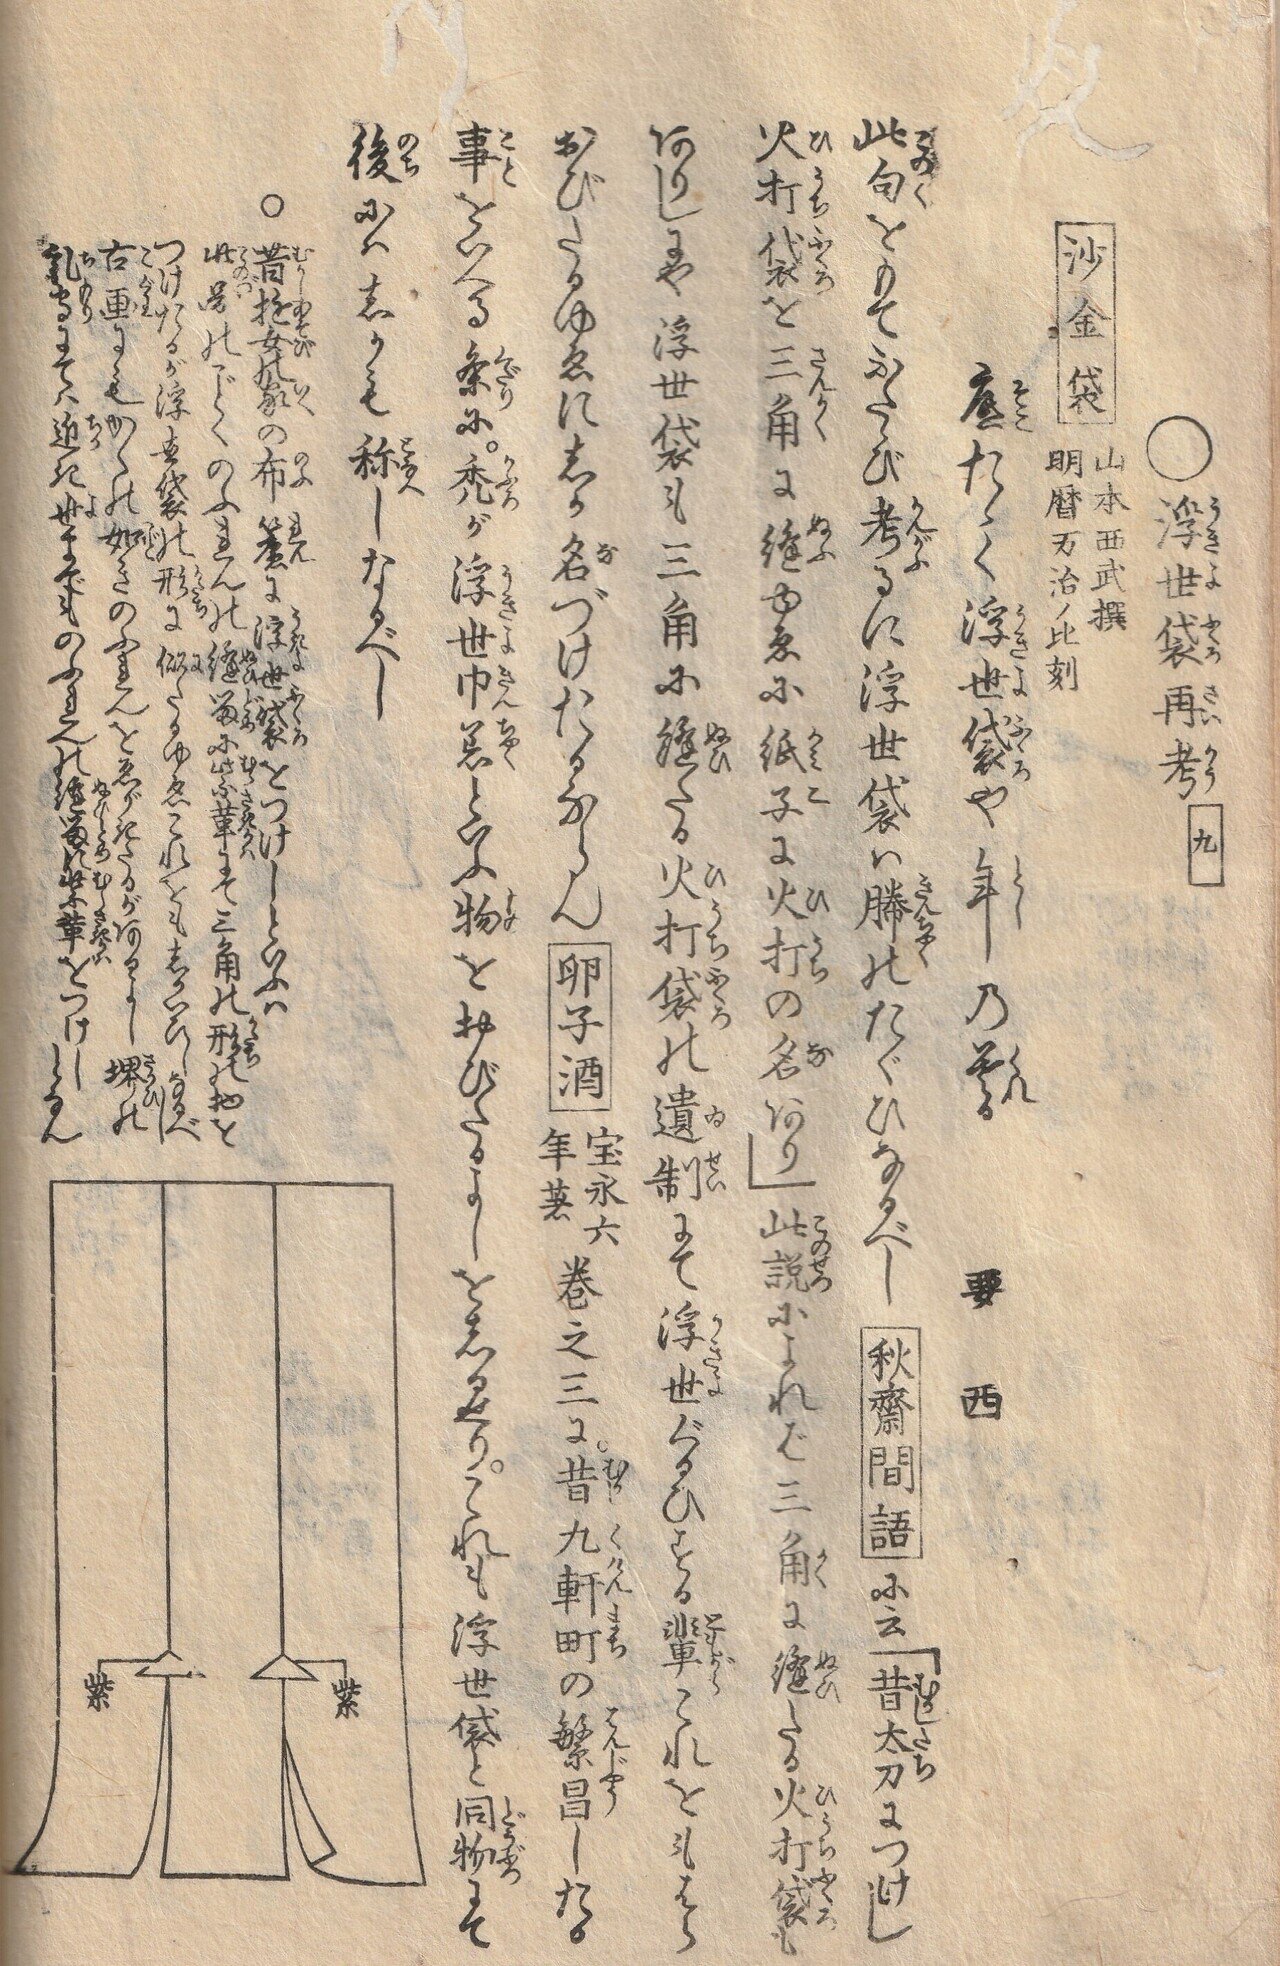 ○浮世袋再考 九
沙金袋 山本西武撰
明暦万治ノ比刻
底たゝく浮世袋や年乃暮 要西
此句をもてふたゝび考るに浮世袋ハ勝のたぐひなるべし 秋齋間語に云「昔太刀につけし
火打袋を三角に縫ゆゑに紙子に火打の名あり」此説によれば三角に縫たる火打袋も
ありしにや浮世袋も三角に縫たる火打袋の遺制にて浮世ぐるひする輩これをもはら
おびたるゆゑにしか名づけたるならん 卵子酒 宝永六年著 巻之三に。昔九軒町の繁昌したる
事をいへる条に。禿が浮世巾着といふ物をおびたるよしをしるせり。これも浮世袋と同物にて
後にハしかも称しなるべし
○昔遊女の家の布簾に浮世袋をつけしといふハ
此図のごとくのふれんの縫留に紫革にて三角の形の物を
つけたるが浮世袋の形に似たるゆゑこれをもしかいひしなるべし
古画にもかくの如きのふれんを画がきたるがあるよし 堺の
乳守にてハ近き世までものふれんの縫留に紫革をつけしとなん
紫
紫